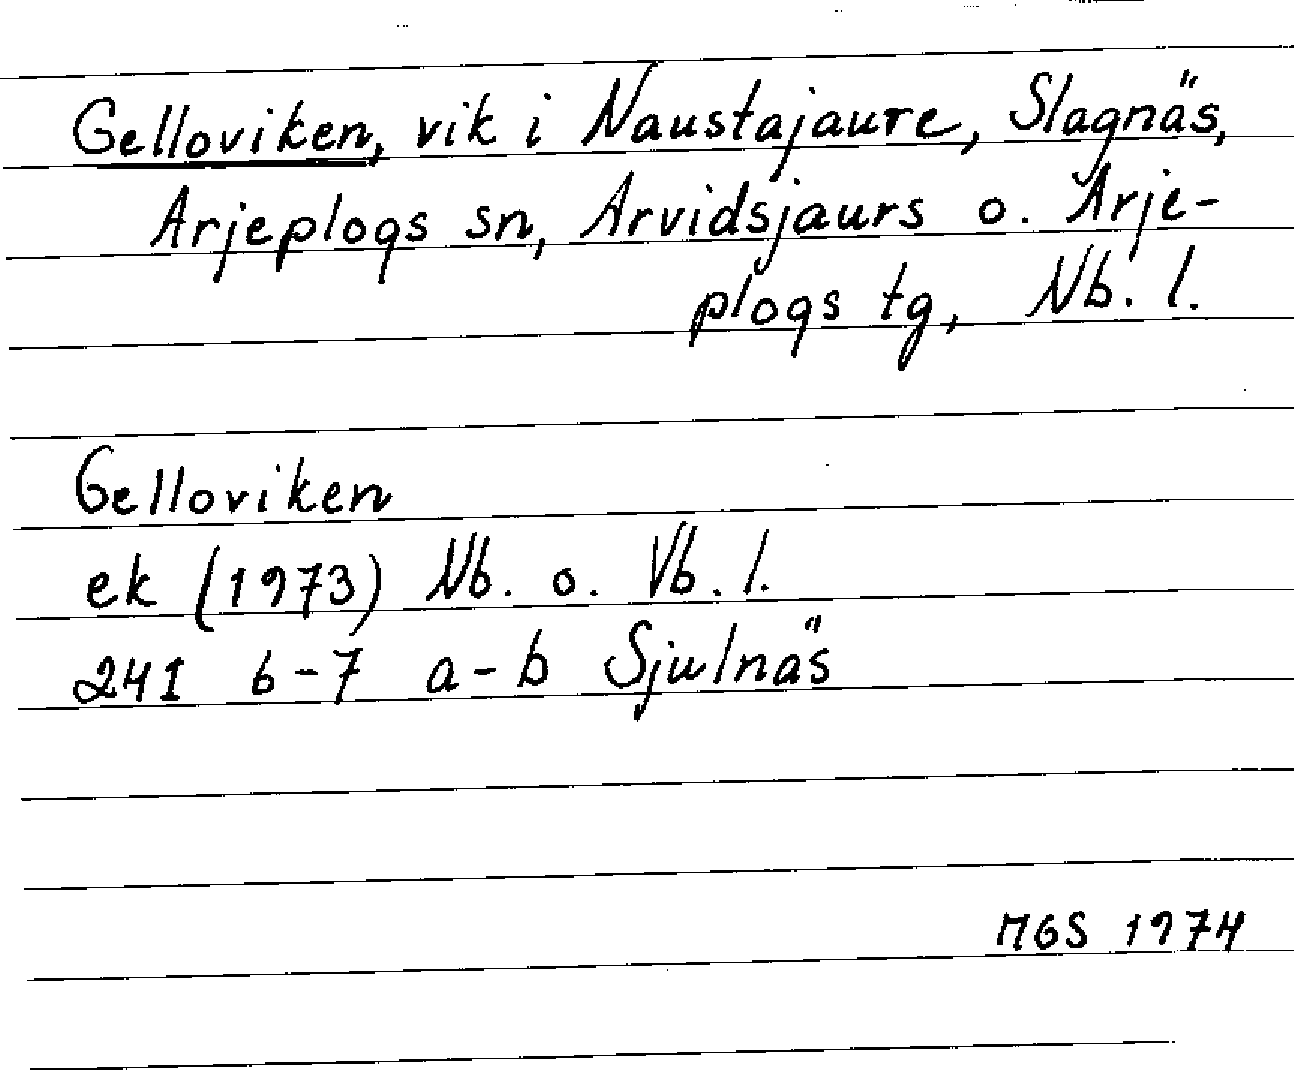 Gelloviken, vik i Naustajaure, Slagnäs,
Arjeplogs sn, Arvidsjaurs o. Arje-
plogs tg, Nb. l.
Gelloviken
ek (1973) Nb. o. Vb. l.
24I 6-7 a-b Sjulnäs
MGS 1974